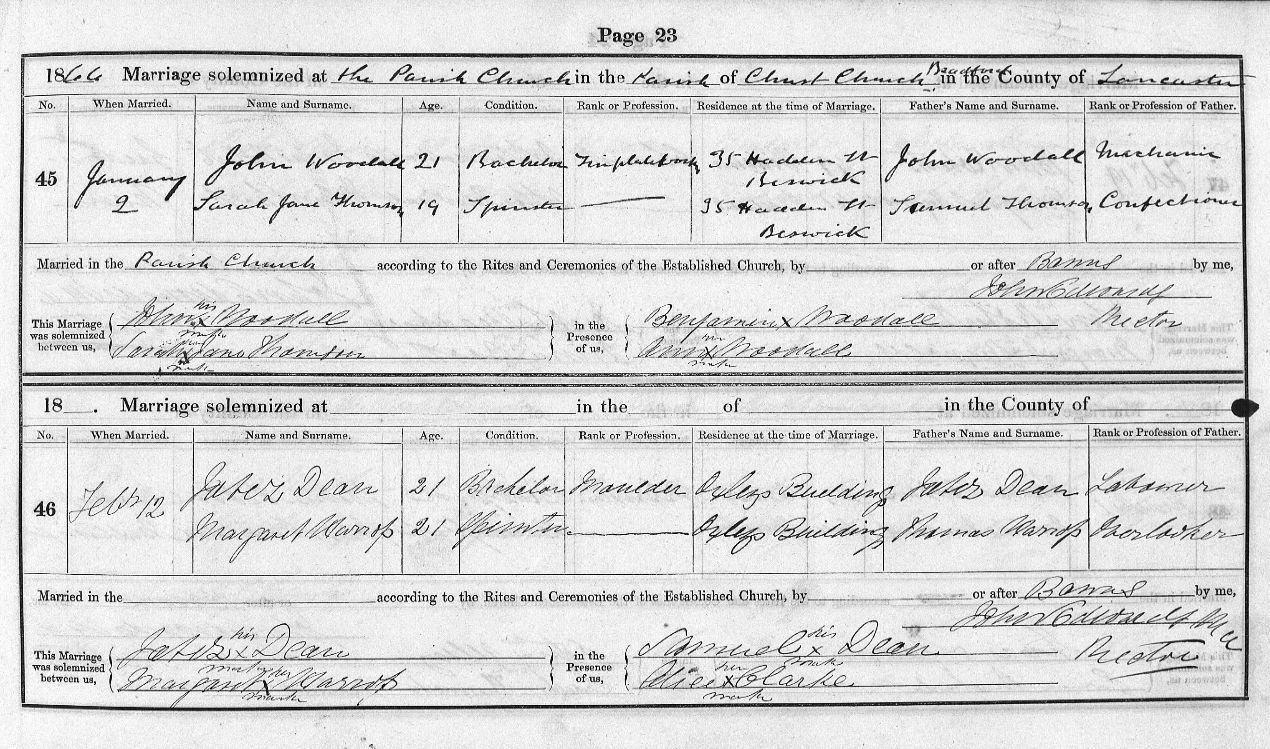 Page 23
1866 Marriage solemnized at the Parish Church in the Parish of Christ Church Bradford in the County of Lancaster
No. When Married. Name and Surname. Age. Condition. Rank or Profession. Residence at the time of Marriage. Father's Name and Surname. Rank or Profession of Father.
45 January 2 John Woodall 21 Bachelor Tinplateworker 35 Hadden St Beswick John Woodall Mechanic
Sarah Jane Thomson 19 Spinster 35 Hadden St Beswick Samuel Thomson Confectioner
Married in the Parish Church according to the Rites and Ceremonies of the Established Church, by or after Banns by me,
John Edwards
Rector
This Marriage was solemnized between us, John his x mark Woodall
Sarah her x mark Jane Thomson
in the Presence of us, Benjamin x Woodall
Ann her x mark Woodall
18 . Marriage solemnized at in the of in the County of
No. When Married. Name and Surname. Age. Condition. Rank or Profession. Residence at the time of Marriage. Father's Name and Surname. Rank or Profession of Father.
46 Feby 12 Jabez Dean 21 Bachelor Moulder Buildings Jabez Dean Labourer
Margaret Warrop 21 Spinster Buildings Thomas Warrop Overlooker
Married in the according to the Rites and Ceremonies of the Established Church, by or after Banns by me,
John Edwards
Rector
This Marriage was solemnized between us, Jabez his x mark Dean
Margaret her x mark Warrop
in the Presence of us, Samuel his x mark Dean
Alice her x mark Clarke